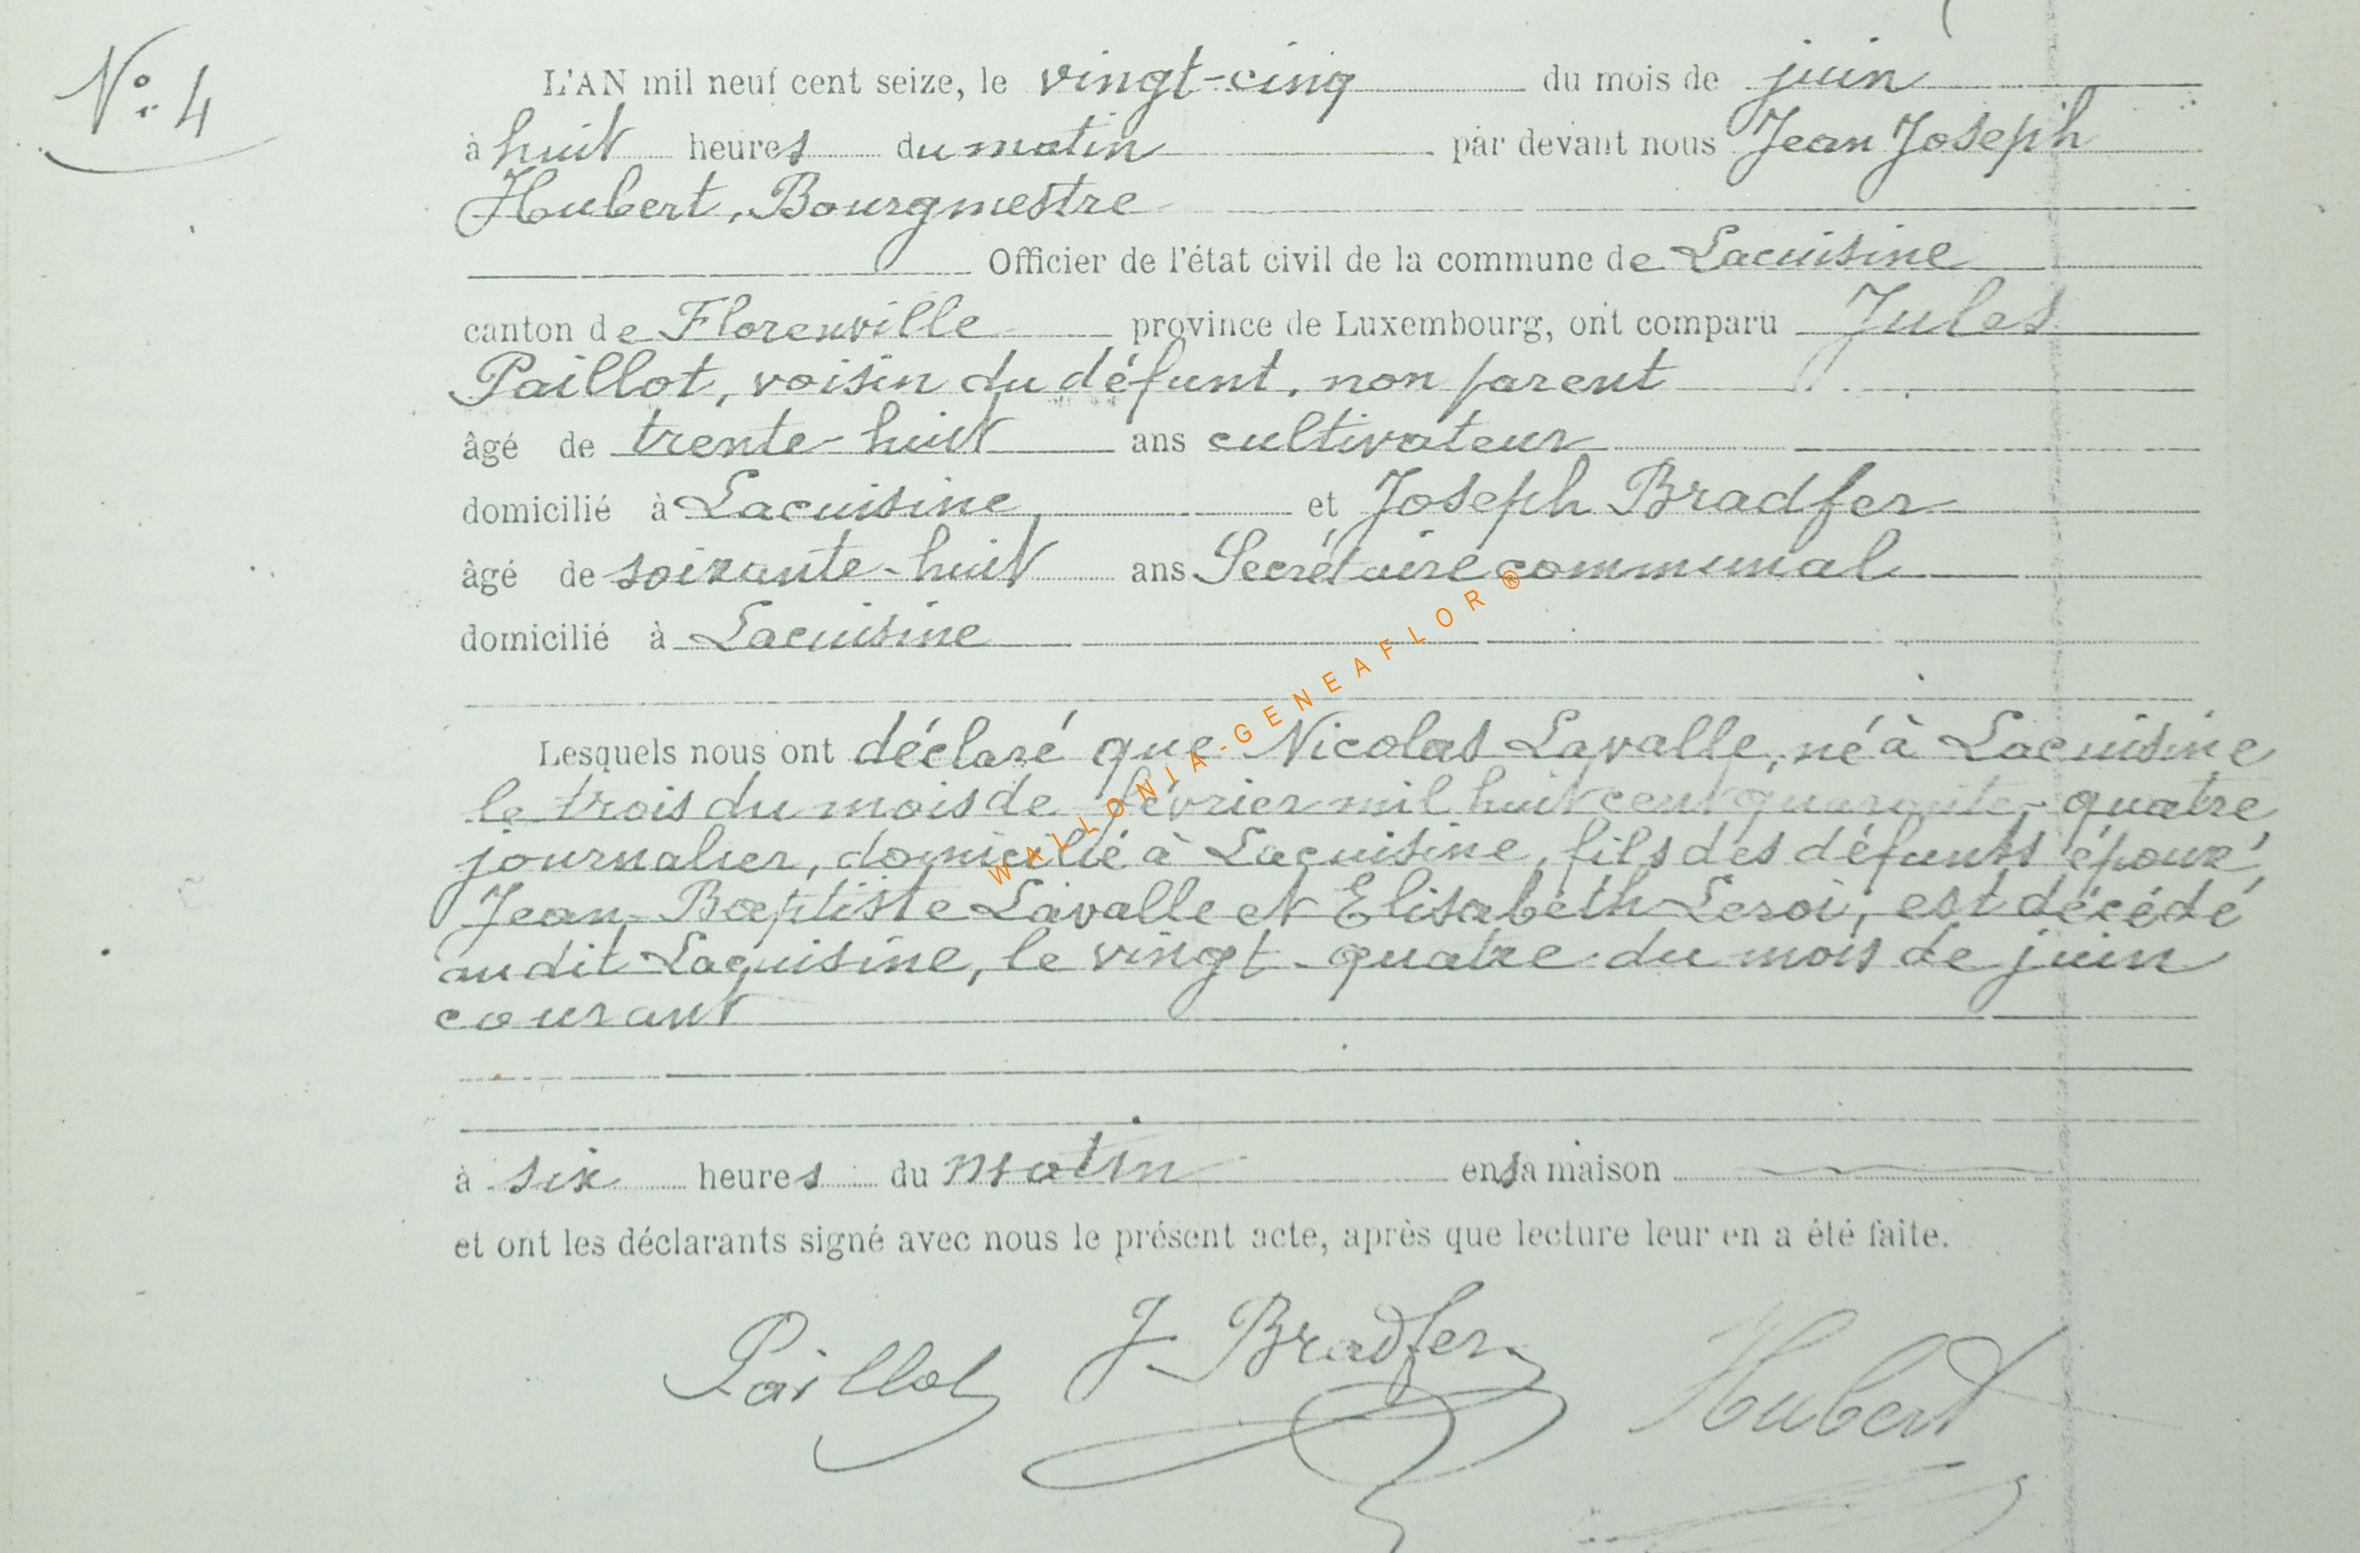 N° 4
L'AN mil neuf cent seize, le vingt-cinq du mois de juin
à huit heures du matin par devant nous Jean Joseph
Hubert, Bourgmestre
Officier de l'état civil de la commune de Lacuisine
canton de Florenville province de Luxembourg, ont comparu Jules
Paillot, voisin du défunt, non parent
âgé de trente-huit ans cultivateur
domicilié à Lacuisine, et Joseph Bradfer
âgé de soixante-huit ans Secrétaire communal
domicilié à Lacuisine
Lesquels nous ont déclaré que Nicolas Lavalle, né à Lacuisine
le trois du mois de février mil huit cent quarante-quatre
journalier, domicilié à Lacuisine, fils des défunts époux
Jean-Baptiste Lavalle et Elisabeth Leroi, est décédé
audit Lacuisine, le vingt-quatre du mois de juin
courant
à six heures du matin en sa maison
et ont les déclarants signé avec nous le présent acte, après que lecture leur en a été faite.
Paillot J. Bradfer Hubert
WALLONIA-GENEAFLOR®